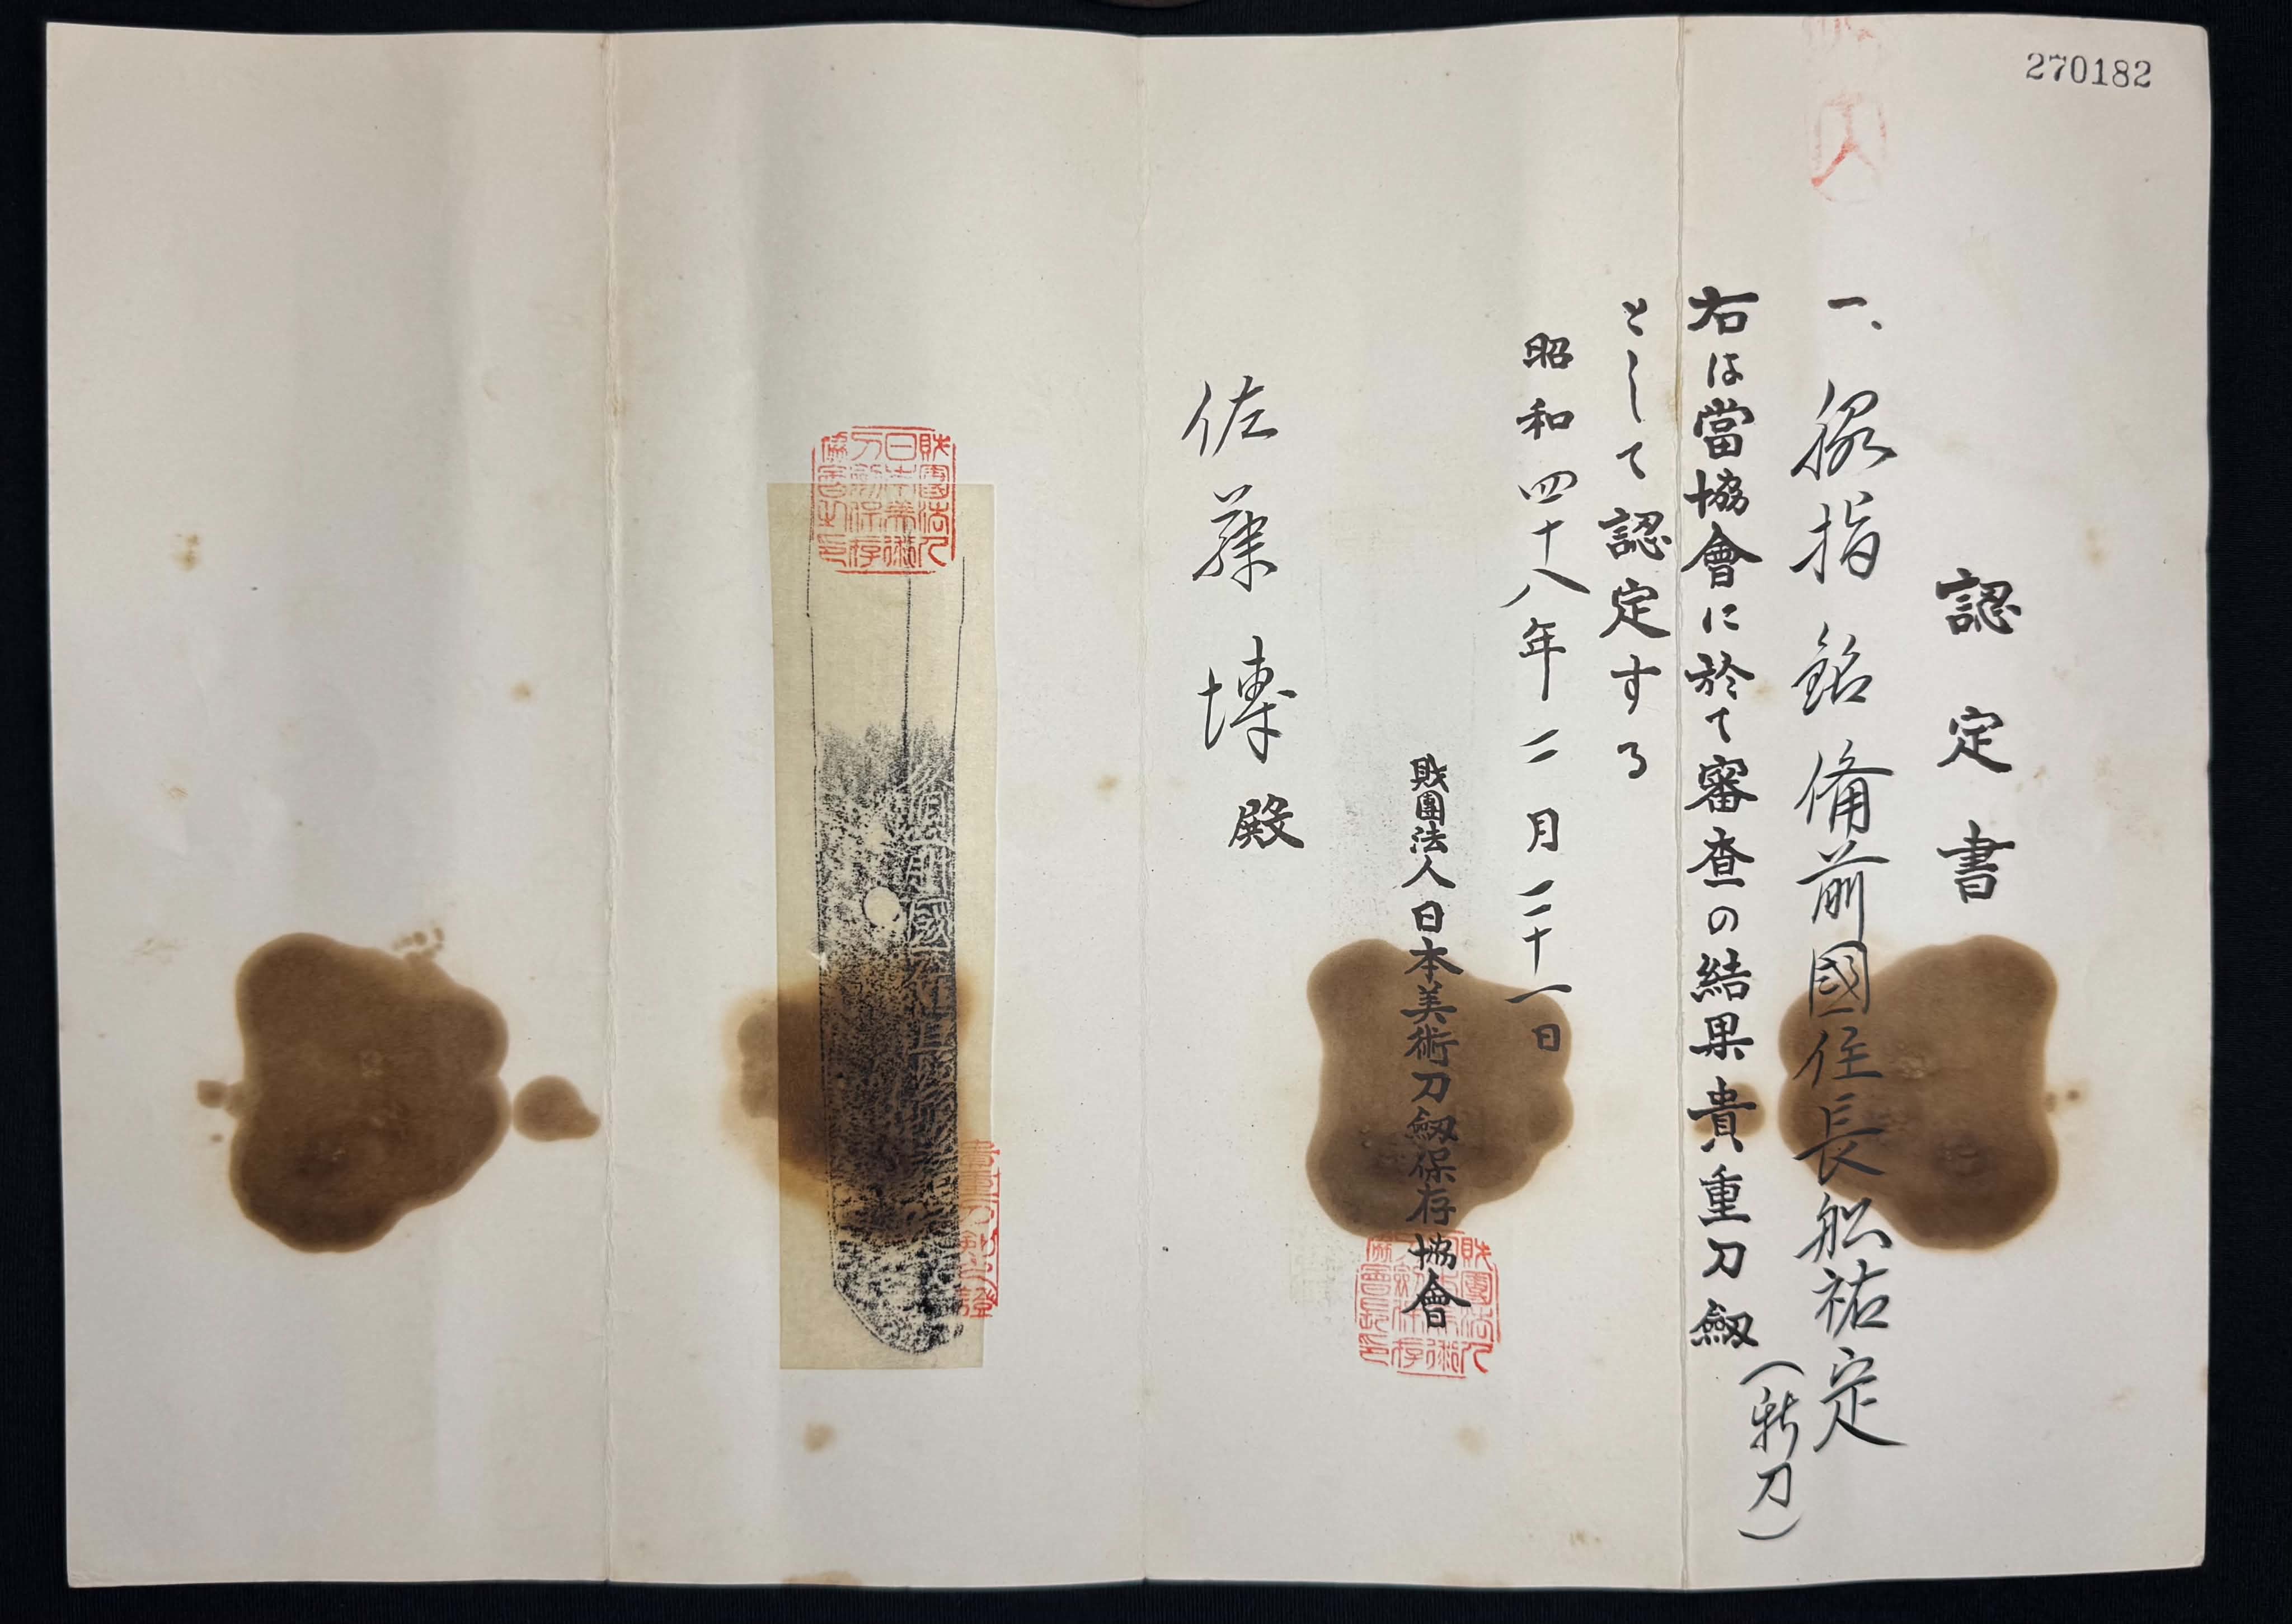 270182
認定書
一、脇指 銘 備前國住長舩祐定
(新刀)
右は當協會に於て審査の結果貴重刀劔
として認定する
昭和四十八年二月二十一日
財團法人日本美術刀劔保存協會
佐藤博殿
財團法人日本美術刀劔保存協會長印
財團法人日本美術刀劔保存協會之印
備前國住長舩祐定
貴重刀劔之證